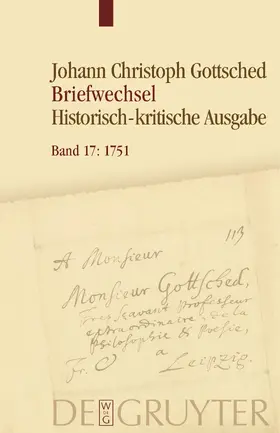 Johann Christoph Gottsched
Briefwechsel
Historisch-kritische Ausgabe
Band 17: 1751
113
A Monsieur
Monsieur Gottsched,
Tres savant Professeur
extraordinaire de la
Philosophie & Poesie,
Fr. a
Leipzig.
W
DE
G
DE GRUYTER